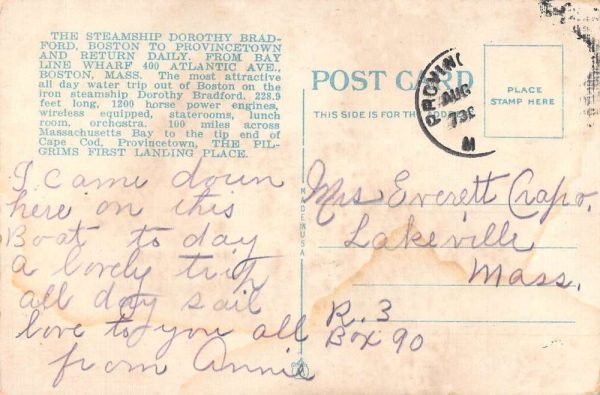 THE STEAMSHIP DOROTHY BRAD-
FORD, BOSTON TO PROVINCETOWN
AND RETURN DAILY. FROM BAY
LINE WHARF 400 ATLANTIC AVE.,
BOSTON, MASS. The most attractive
all day water trip out of Boston on the
iron steamship Dorothy Bradford. 228.9
feet long, 1200 horse power engines,
wireless equipped, staterooms, lunch
room, orchestra. 100 miles across
Massachusetts Bay to the tip end of
Cape Cod, Provincetown, THE PIL-
GRIMS FIRST LANDING PLACE.
I came down
here on this
Boat to day
a lovely trip
all day sail
love to you all
from Annie
MADE IN USA
POST CARD
THIS SIDE IS FOR THE ADDRESS
PROVINC
AUG
M
PLACE
STAMP HERE
Mrs Everett Crapo,
Lakeville
Mass.
R. 3
Box 90